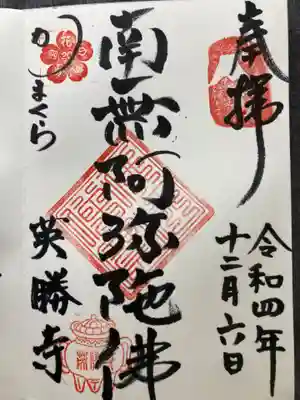 奉拝
令和四年
十二月六日
南無阿弥陀佛
かまくら
英勝寺